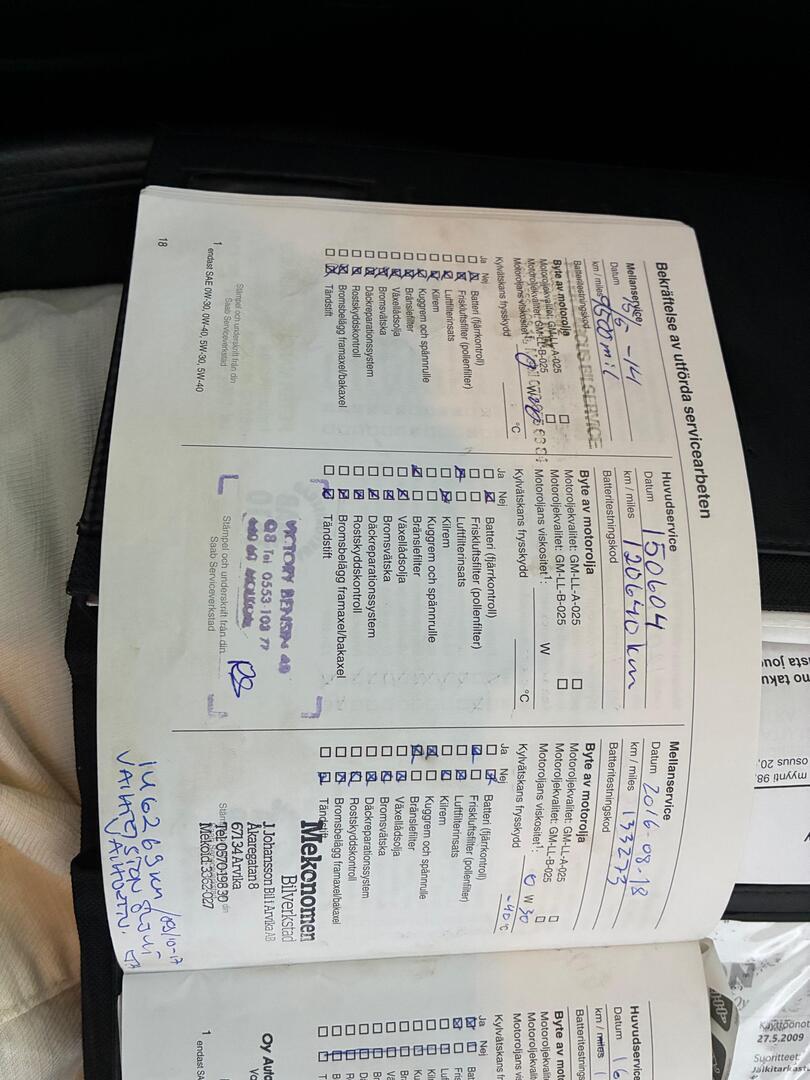 Bekräftelse av utförda servicearbeten
Mellanservice
Datum 15/5 -14
km / miles 9500 mil
Batteritestningskod
BILSERVICE
Byte av motorolja
Motoroljekvalitet: GM-LL-A-025
Motoroljekvalitet: GM-LL-B-025
Motoroljans viskositet¹: 0 W 30
Kylvätskans frysskydd °C
Ja Nej
Batteri (fjärrkontroll)
Friskluftsfilter (pollenfilter)
Luftfilterinsats
Kilrem
Kuggrem och spännrulle
Bränslefilter
Växellådsolja
Bromsvätska
Däckreparationssystem
Rostskyddskontroll
Bromsbelägg framaxel/bakaxel
Tändstift
Stämpel och underskrift från din
Saab Serviceverkstad
1 endast SAE 0W-30, 0W-40, 5W-30, 5W-40
18
Huvudservice
Datum 150604
km / miles 120640 km
Batteritestningskod
Byte av motorolja
Motoroljekvalitet: GM-LL-A-025
Motoroljekvalitet: GM-LL-B-025
Motoroljans viskositet¹: W
Kylvätskans frysskydd °C
Ja Nej
Batteri (fjärrkontroll)
Friskluftsfilter (pollenfilter)
Luftfilterinsats
Kilrem
Kuggrem och spännrulle
Bränslefilter
Växellådsolja
Bromsvätska
Däckreparationssystem
Rostskyddskontroll
Bromsbelägg framaxel/bakaxel
Tändstift
VICTORY BENSIN AB
Q8 Tel 0553-103 77
Stämpel och underskrift från din
Saab Serviceverkstad
Mellanservice
Datum 2016-08-18
km / miles 133273
Batteritestningskod
Byte av motorolja
Motoroljekvalitet: GM-LL-A-025
Motoroljekvalitet: GM-LL-B-025
Motoroljans viskositet¹: 0 W 30
Kylvätskans frysskydd -40 °C
Ja Nej
Batteri (fjärrkontroll)
Friskluftsfilter (pollenfilter)
Luftfilterinsats
Kilrem
Kuggrem och spännrulle
Bränslefilter
Växellådsolja
Bromsvätska
Däckreparationssystem
Rostskyddskontroll
Bromsbelägg framaxel/bakaxel
Tändstift
Mekonomen
Bilverkstad
J Johansson Bil i Arvika AB
Åkaregatan 8
671 34 Arvika
Tel: 0570-198 30
MekoId: 3362027
146269 km /09/10-17
VAIHTEISTON ÖLJYT
VAIHDETTU.
Huvudservice
Datum 16
km / miles 1
Batteritestningskod
Byte av mot
Motoroljekva
Motoroljekva
Motoroljans
Kylvätskans fr
Ja Nej
Oy Auto
1 endast SA
no taku
ista jou
osuus 20,
myynti 98,
Käyttöönot
27.5.2009
Suoritteet:
Jälkitarkas